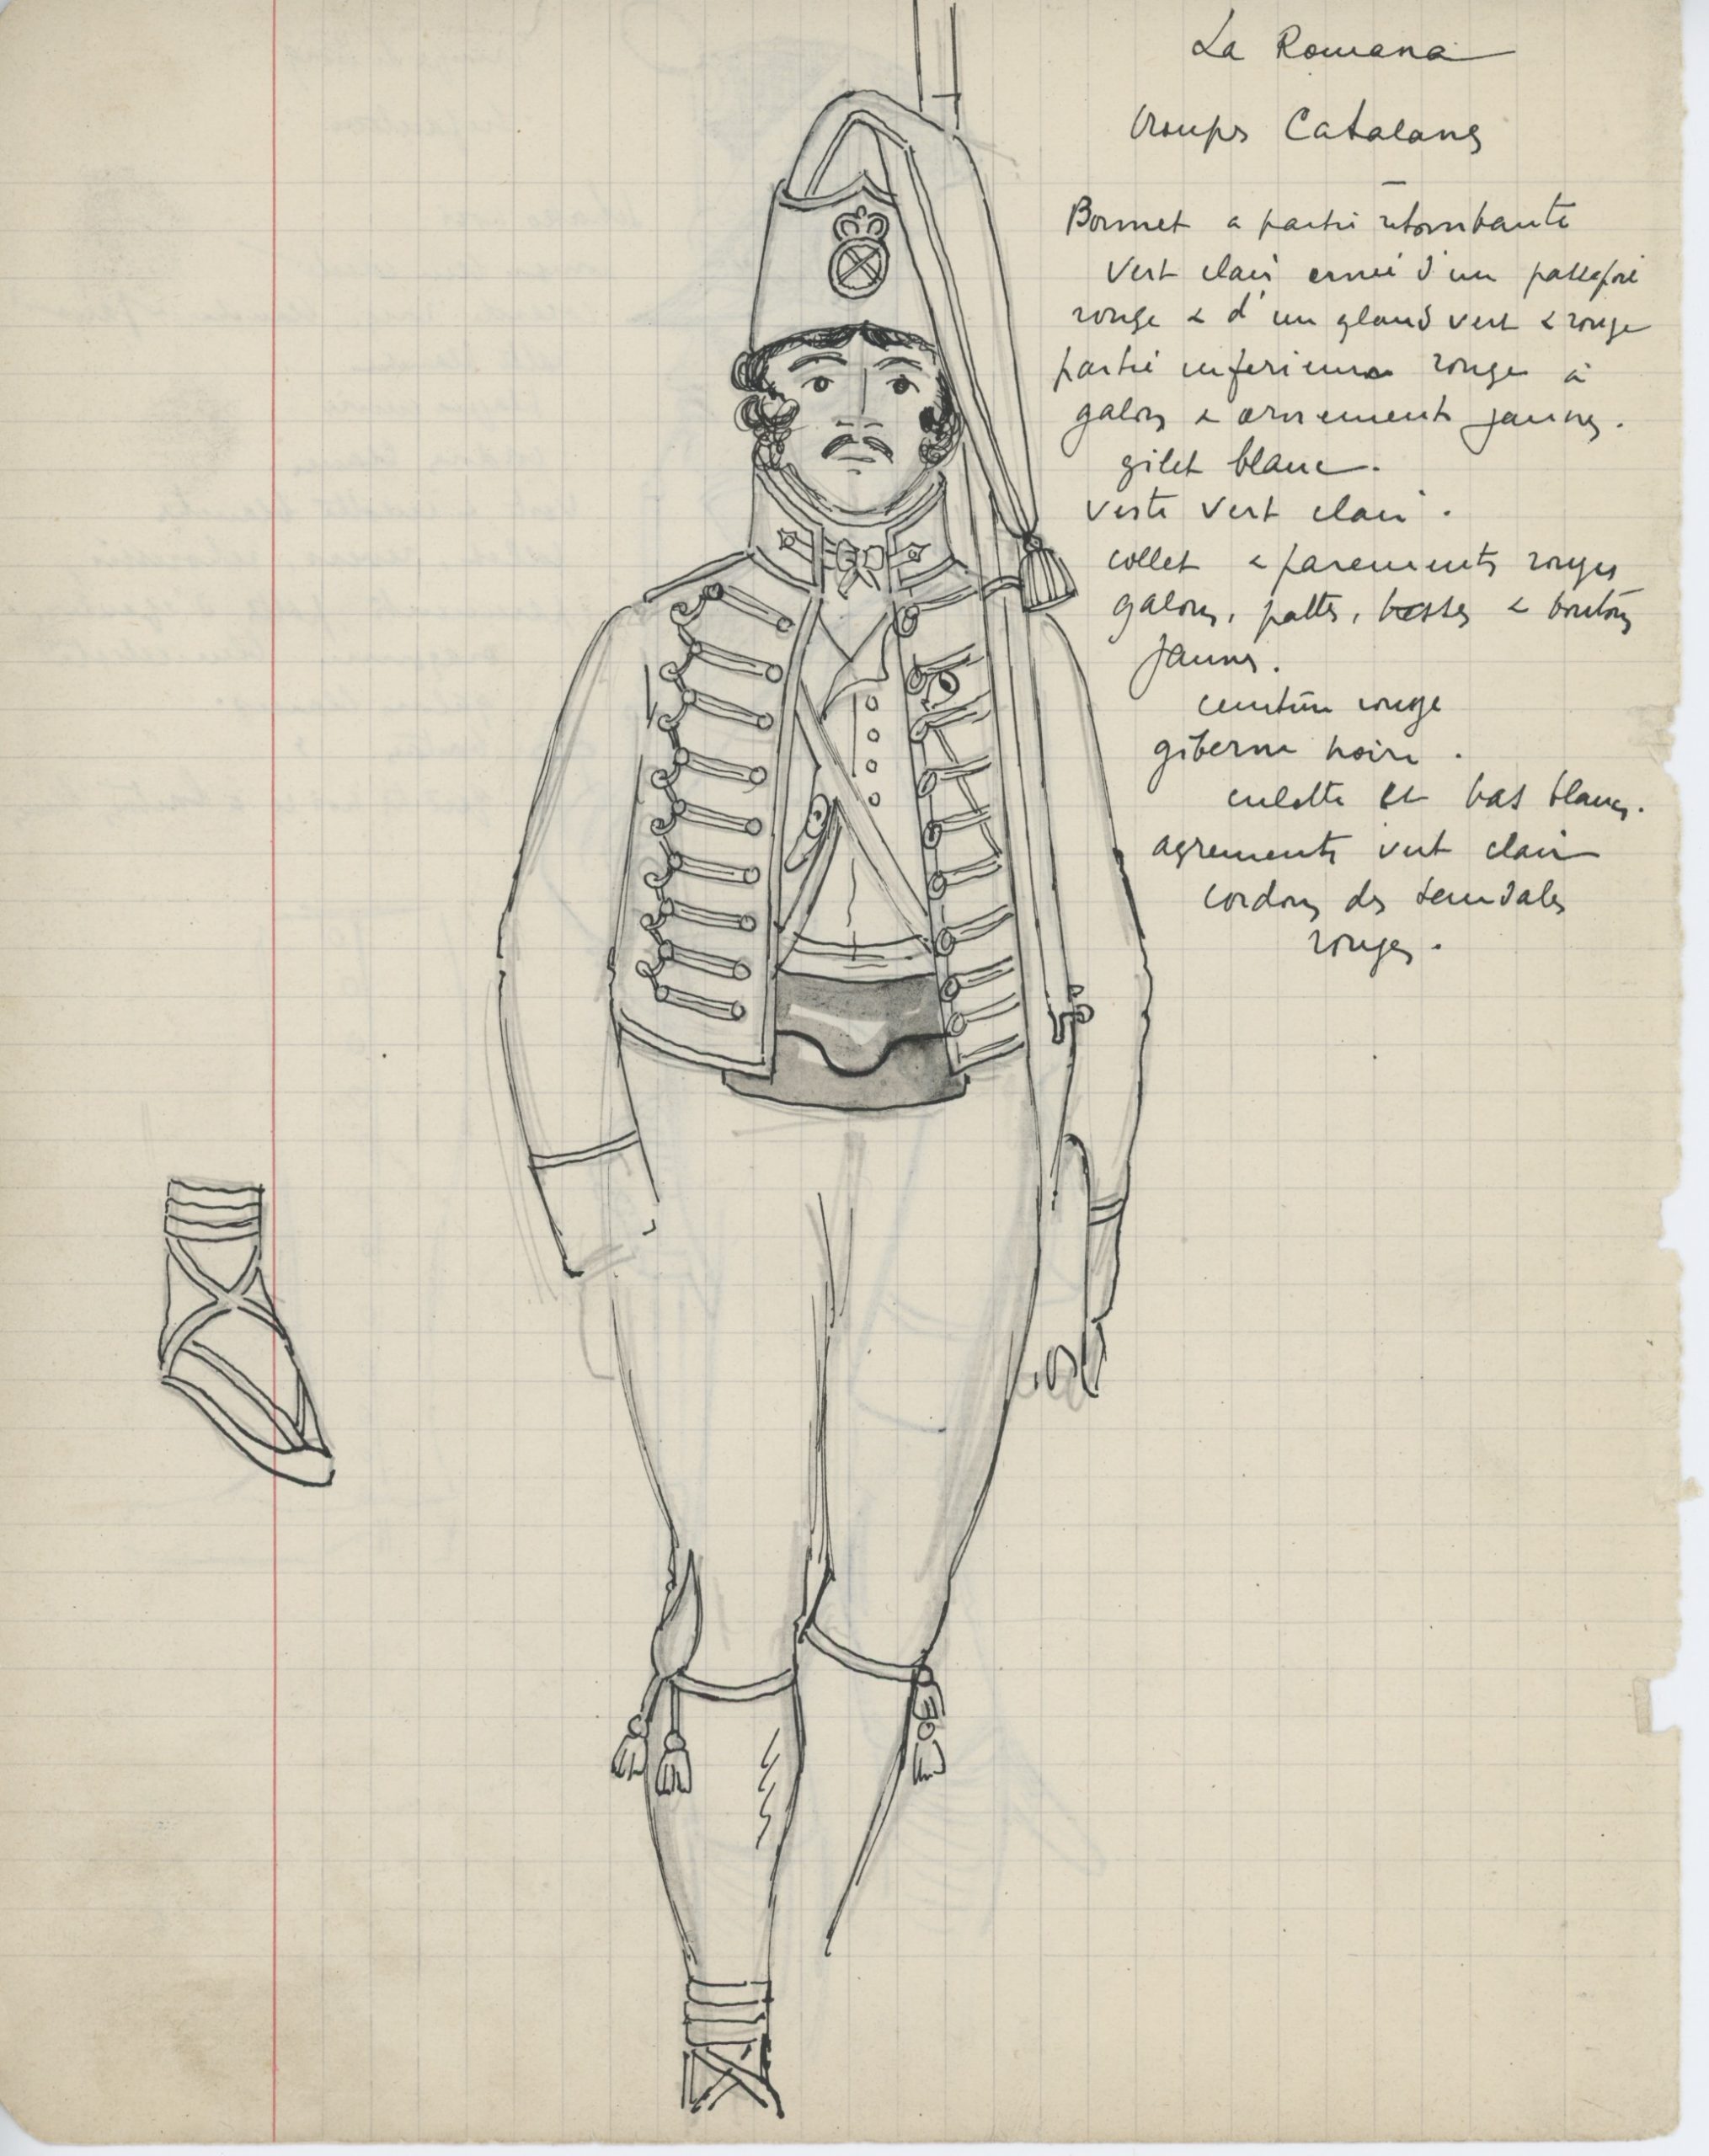 La Romana
troupes Catalanes
Bonnet a partie retombante
vert clair orné d'un passepoil
rouge & d'un gland vert & rouge
partie inferieure rouge à
galons & ornements jaunes.
gilet blanc.
veste vert clair.
collet & parements rouges
galons, pattes, & boutons
jaunes.
ceinture rouge
giberne noire.
culotte et bas blancs.
agrements vert clair
cordons des sandales
rouges.